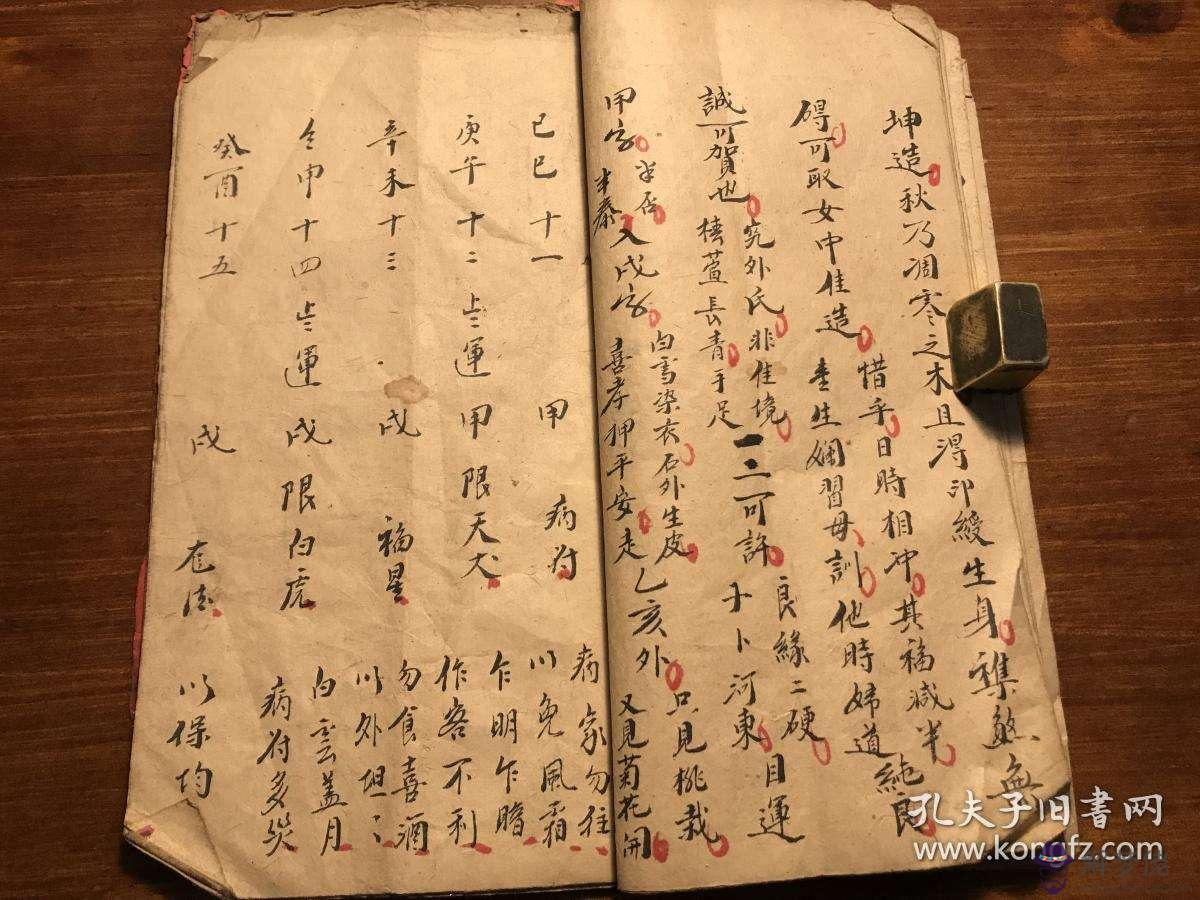 坤造秋乃凋零之木且得印綬生身襍煞無
碍可取女中佳造
惜乎日時相冲其福減半
生嫻習母訓他時婦道純良
誠可賀也
究外氏非佳境
椿萱長青手足
一二可許
良緣二硬
卜河東
目運
甲字
半否
半泰
入戌字
白雪染衣石外生皮
喜孝押平安走乙亥外
只見桃栽
又見菊花開
己巳十一
甲
病符
病家勿往
以免風霜
庚午十二
上運甲限天犬
乍明乍暗
作客不利
辛未十三
戌
福星
勿食喜酒
以外坦
壬申十四
上運戌限白虎
白雲盖月
病符多災
癸酉十五
戌
以保均
孔夫子旧书网
www.kongfz.com